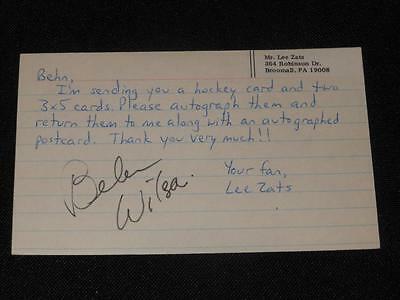 Mr. Lee Zats
364 Robinson Dr.
Broomall, PA 19008
Behn,
I'm sending you a hockey card and two
3x5 cards. Please autograph them and
return them to me along with an autographed
postcard. Thank you very much!!
Your fan,
Lee Zats
Behn
Wilson